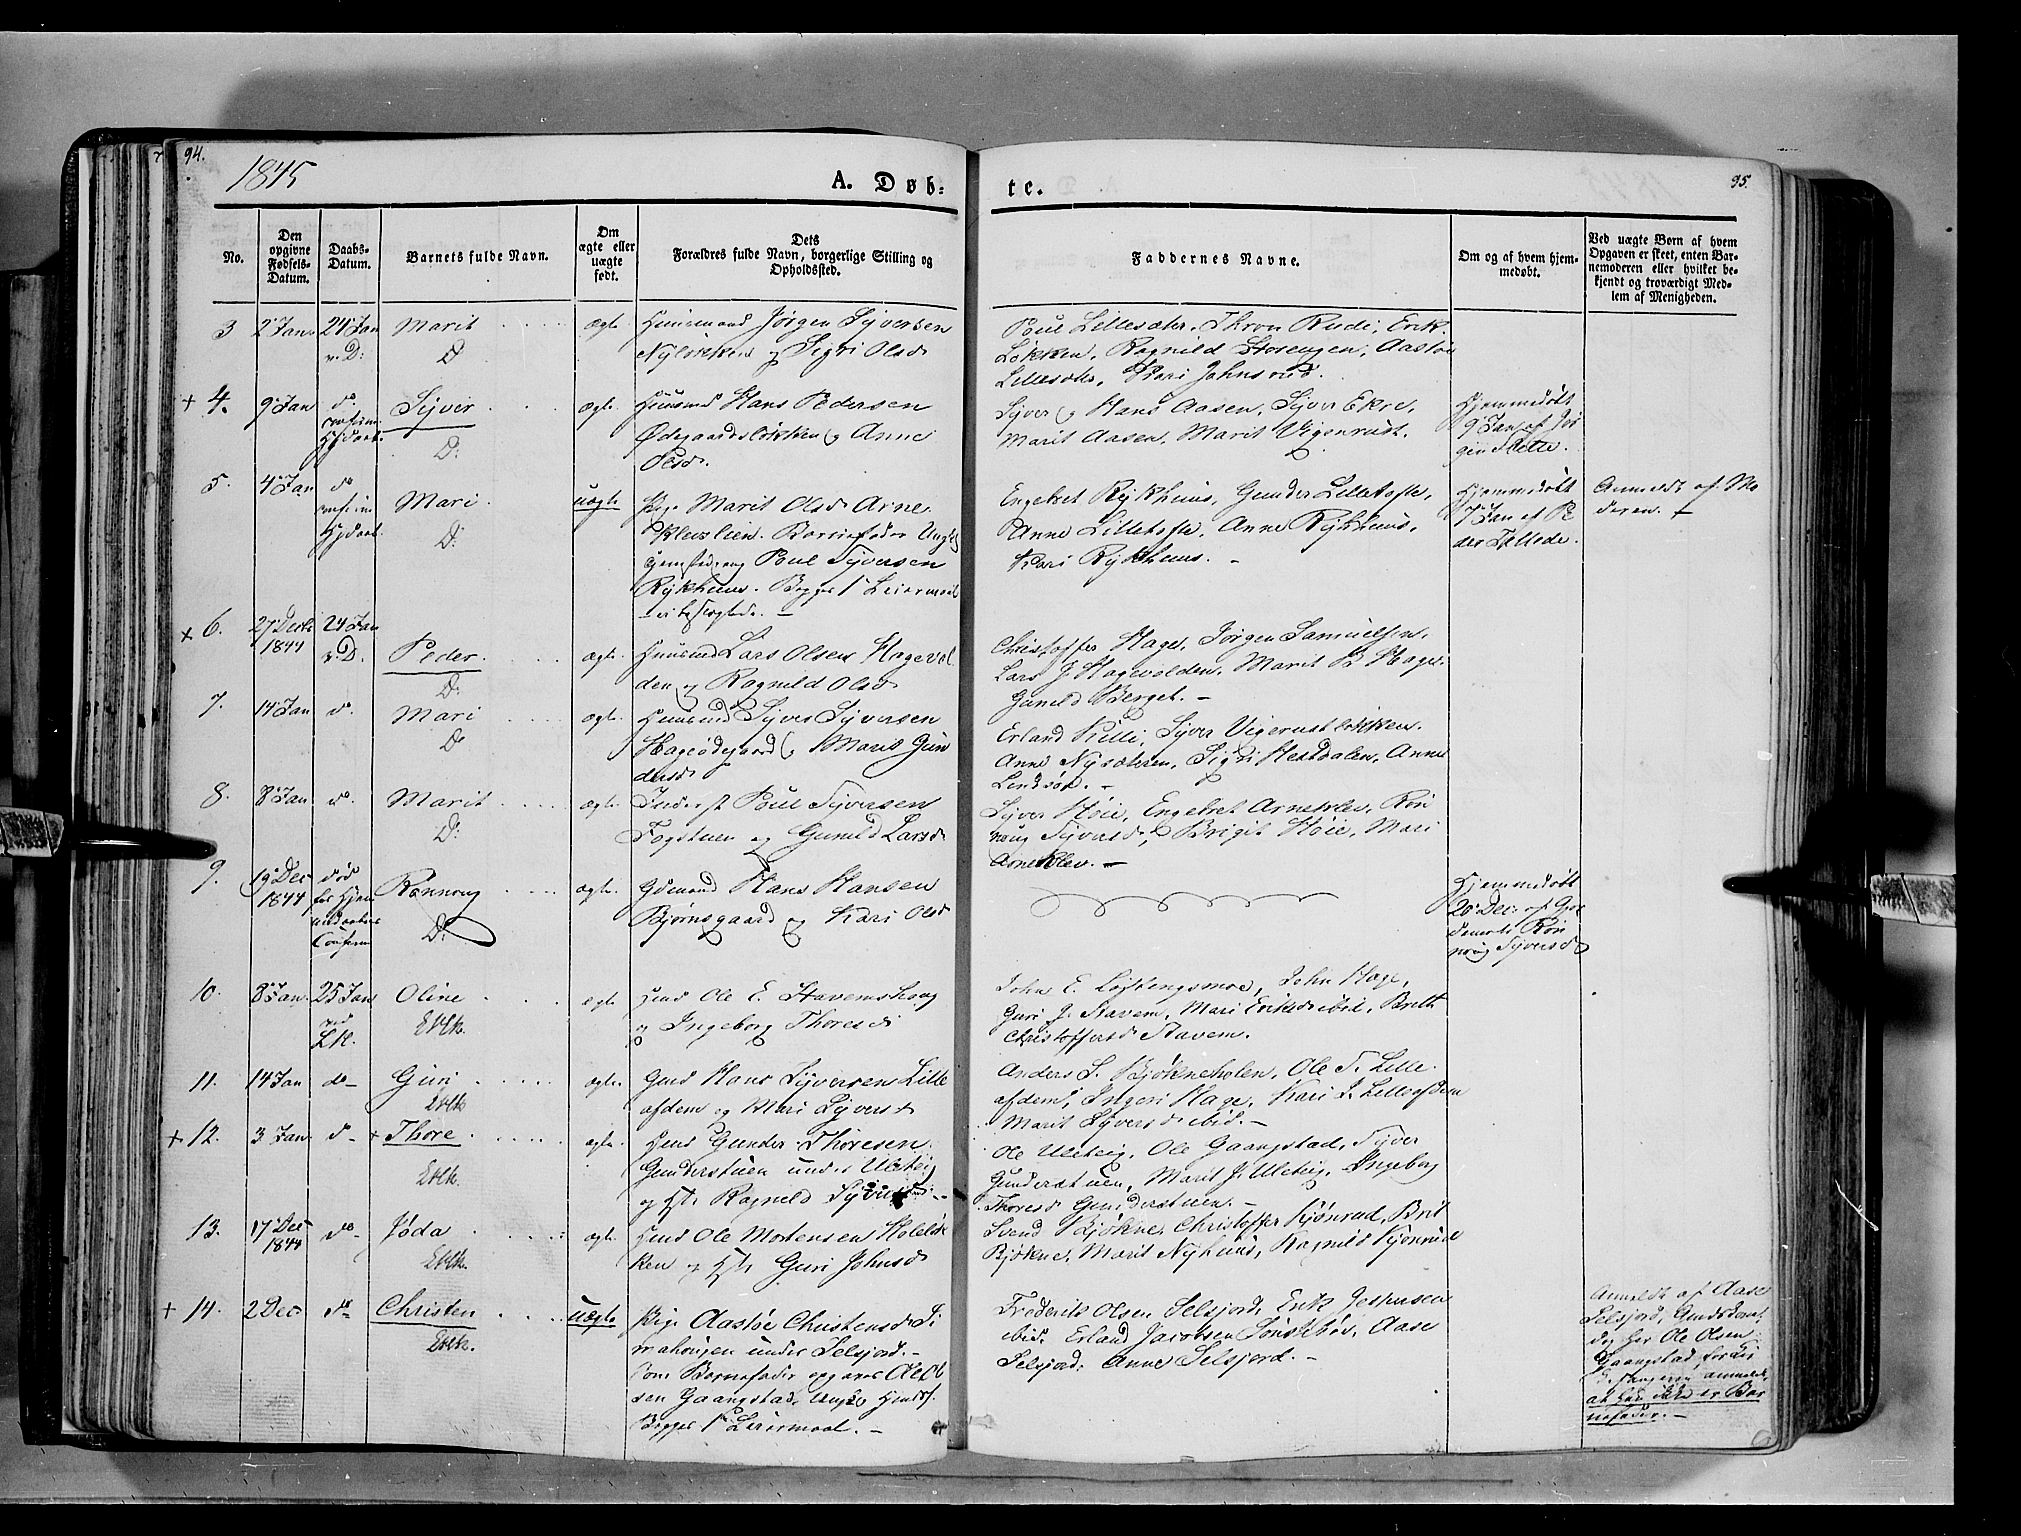 94.
1845
A. Døb-
te.
95.
No.
Den opgivne Fødsels-Datum.
Daabs-Datum.
Barnets fulde Navn.
Om ægte eller uægte født.
Dets Forældres fulde Navn, borgerlige Stilling og Opholdssted.
Faddernes Navne.
Om og af hvem hjemmedøbt.
Ved uægte Børn af hvem Opgaven er skeet, enten Barnemoderen eller hvilket bekjendt og troværdigt Medlem af Menigheden.
3 2 Jan. 24 Jan Marit ægte. Huusmand Jørgen Syversen
Nyløkken og Sigri Olsd
v. D: D
Poul Lillesæter, Thron Rudi, Erik
Løkken, Ragnild Storengen, Aaste
Lillesæter, Kari Johnsrud.
+ 4. 9 Jan do Syver ægte. Huusmd Hans Pedersen
Ødegaardsløkken og Anne
Olsd.
D:
Syver og Hans Aasen, Syver Ekre,
Marit Aasen, Marit Vigerust.
Hjemmedøbt
9 Jan af Jør
gen
5. 4 Jan do Mari. uægte Pige Marit Olsd Arne
klevlien. Barnefader Ungk.
Poul Syversen
Rykhuus. Begges 1ste Leiermaal
D:
Engebret Rykhuus, Gunder Lilletofte,
Anne Lilletofte, Anne Rykhuus,
Kari Rykhuus. -
Hjemmedøbt
7 Jan af Pe
der
Anmeldt af Mo
deren.
+ 6. 27 Decbr 1844 24 Jan v. D. Peder. ægte. Huusmd Lars Olsen Hagevol
den og Ragnild Olsd
D:
Christoffer Hage, Jørgen Samuelsen,
Lars J. Hagevolden, Marit Hage.
Gunild Berget. -
7. 14 Jan do. Mari ægte. Huusmd Syver Syversen
Hageødegaard og Marit Gun
dersd
D
Erland Killi, Syver Vigerustløkken.
Anne Nysæteren, Sigri Hestdalen, Anne
8. 8 Jan do. Marit ægte. Inderst Poul Syversen
Fogstuen og Gunild Larsd.
D:
Syver Høie, Engebret Arneklev, Røn
noug Syversd, Brigit Høie, Mari
Arneklev. -
9. 19 Dec 1844 død
før Hjem
medaabens
Confirm
Rønnoug ægte. Gdmand Hans Hansen
Bjørnsgaard og Kari Olsd
D:
Hjemmedøbt
20 Dec: af
Røn
noug Syversd
10. 8 Jan. 25 Jan Oline ægte Hmd Ole E. Stavemshoug
og Ingeborg Thoresd
John E. Løftingsmoe, John Hage,
Guri J. Stavem, Mari Eriksd ibid, Britt
Christoffersd Stavem.
11. 14 Jan do- Guri ægte. Gmd Hans Syversen Lille
afdem og Mari Syversd
Anders S. Bjøkneholen, Ole S. Lille
afdem, Ingeri Hage, Kari J. Lilleafdem
Marit Syversd ibid. -
+ 12. 3 Jan. do- + Thore ægte Hmd Gunder Thoresen
Gunderstuen under Ulsteig
og Hst. Ragnild Syversd. -
Ole Ulsteig, Ole Gaangstad, Syver
Gunderstuen, Marit J. Ulsteig, Ingeborg
Thoresd Gunderstuen. -
13. 17 Dec 1844 do- Jøda ægte. Hmd Ole Mortensen Holeløk
ken og Hst. Guri Johnsd
Svend Bjøkne, Christoffer Kjønrud, Brit
Bjøkne, Marit Nyhuus, Ragnild Kjønrud
+ 14. 2 Dec. do Christen uægte Pige Aaste Christensd
under Selsjord. -
Som Barnefader opgaves Ole Ol
sen Gaangstad, Ungk.
Begges 1ste Leiermaal. -
Frederik Olsen Selsjord, Erik Jespersen
ibid. Erland Jacobsen, Aase
Selsjord. Anne Selsjord. -
Anmeldt af Aase
Selsjord,
dog har Ole Olsen
Gaangstad
anmeldt,
at han ikke er Bar
nefader. -